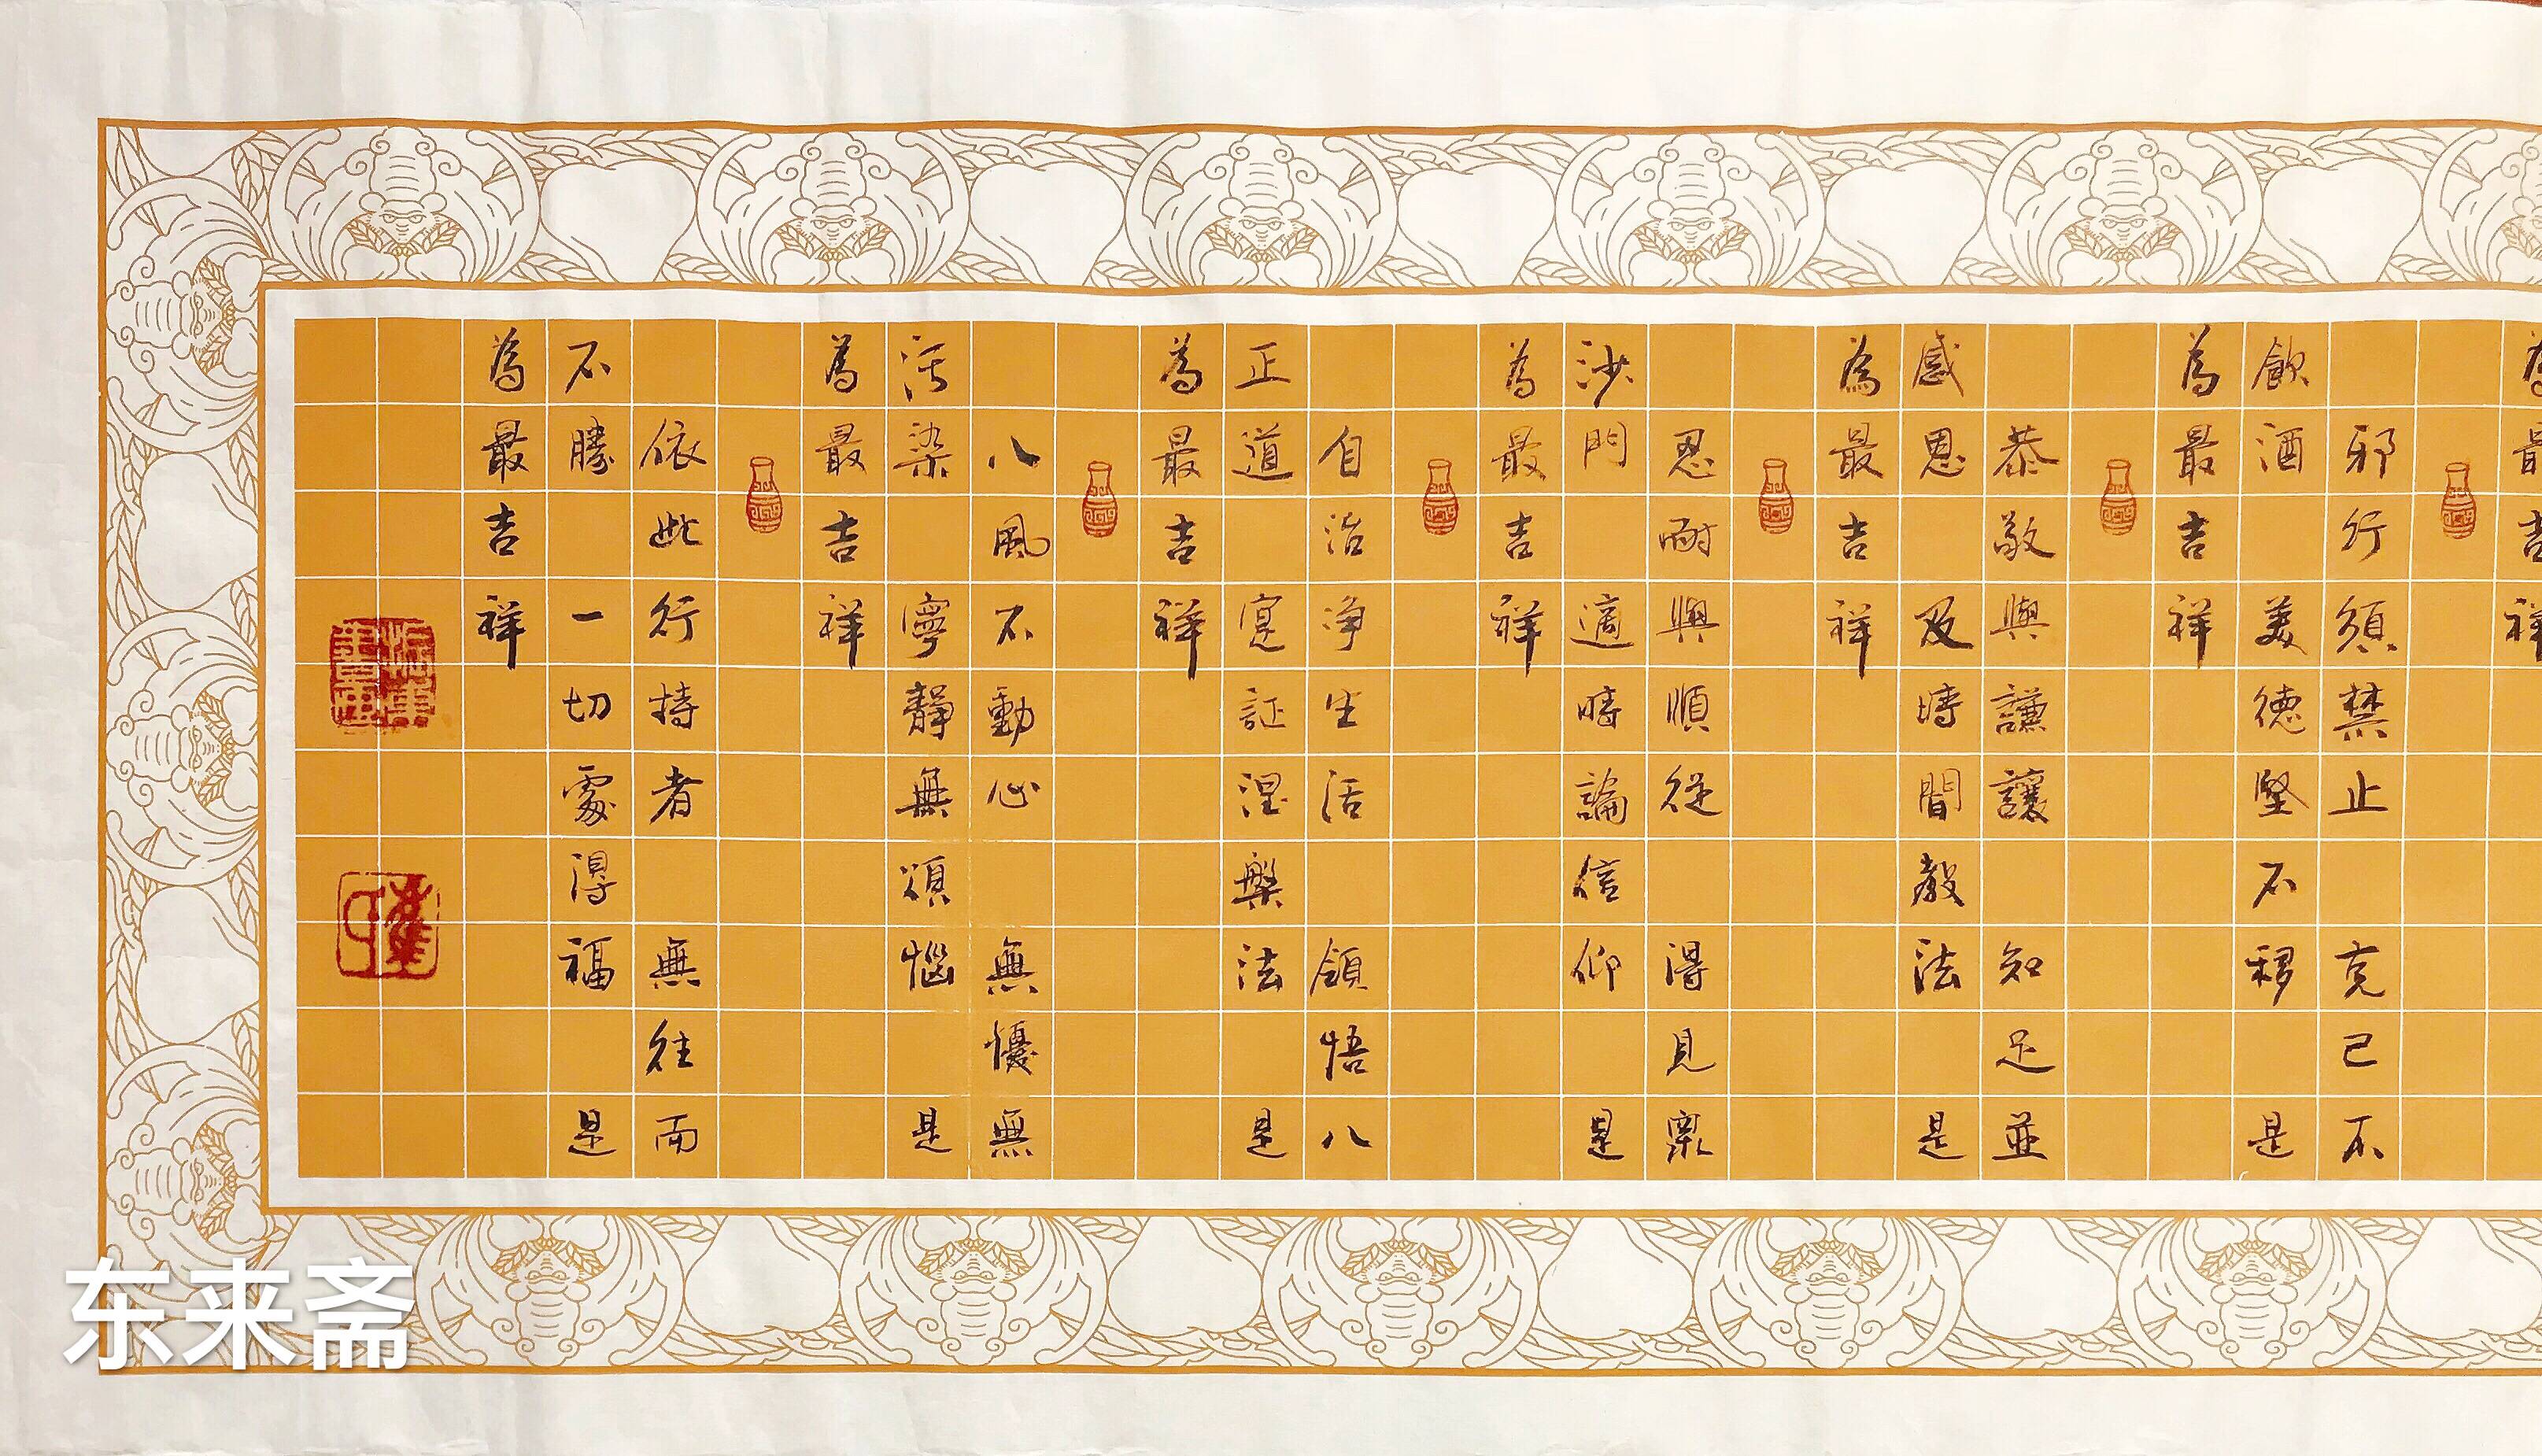 為最吉祥
邪行須禁止 克己不
飲酒 美德堅不移 是
為最吉祥
恭敬與謙讓 知足並
感恩 及時聞教法 是
為最吉祥
忍耐與順從 得見眾
沙門 適時論信仰 是
為最吉祥
自治淨生活 領悟八
正道 寔証涅槃法 是
為最吉祥
八風不動心 無憂無
污染 寧靜無煩惱 是
為最吉祥
依此行持者 無往而
不勝 一切處得福 是
為最吉祥
东来斋